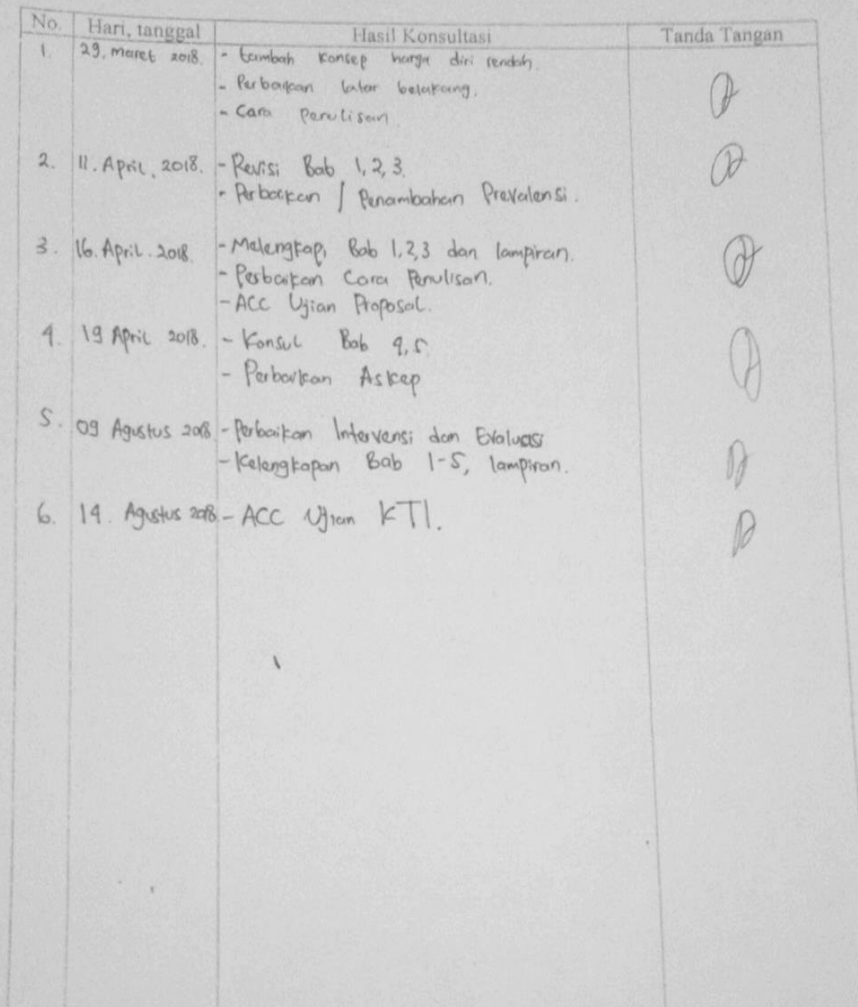 No. Hari, tanggal Hasil Konsultasi Tanda Tangan
1. 29. maret 2018. - tambah konsep harga diri rendah.
- Perbaikan latar belakang.
- Cara Penulisan
2. 11. April, 2018. - Revisi Bab 1, 2, 3.
- Perbaikan / Penambahan Prevalensi.
3. 16. April. 2018. - Melengkapi Bab 1, 2, 3 dan lampiran.
- Perbaikan Cara Penulisan.
- ACC Ujian Proposal.
4. 19 April 2018. - Konsul Bab 4, 5.
- Perbaikan Askep
5. 09 Agustus 2018 - Perbaikan Intervensi dan Evaluasi
- Kelengkapan Bab 1-5, lampiran.
6. 14. Agustus 2018 - ACC Ujian KTI.